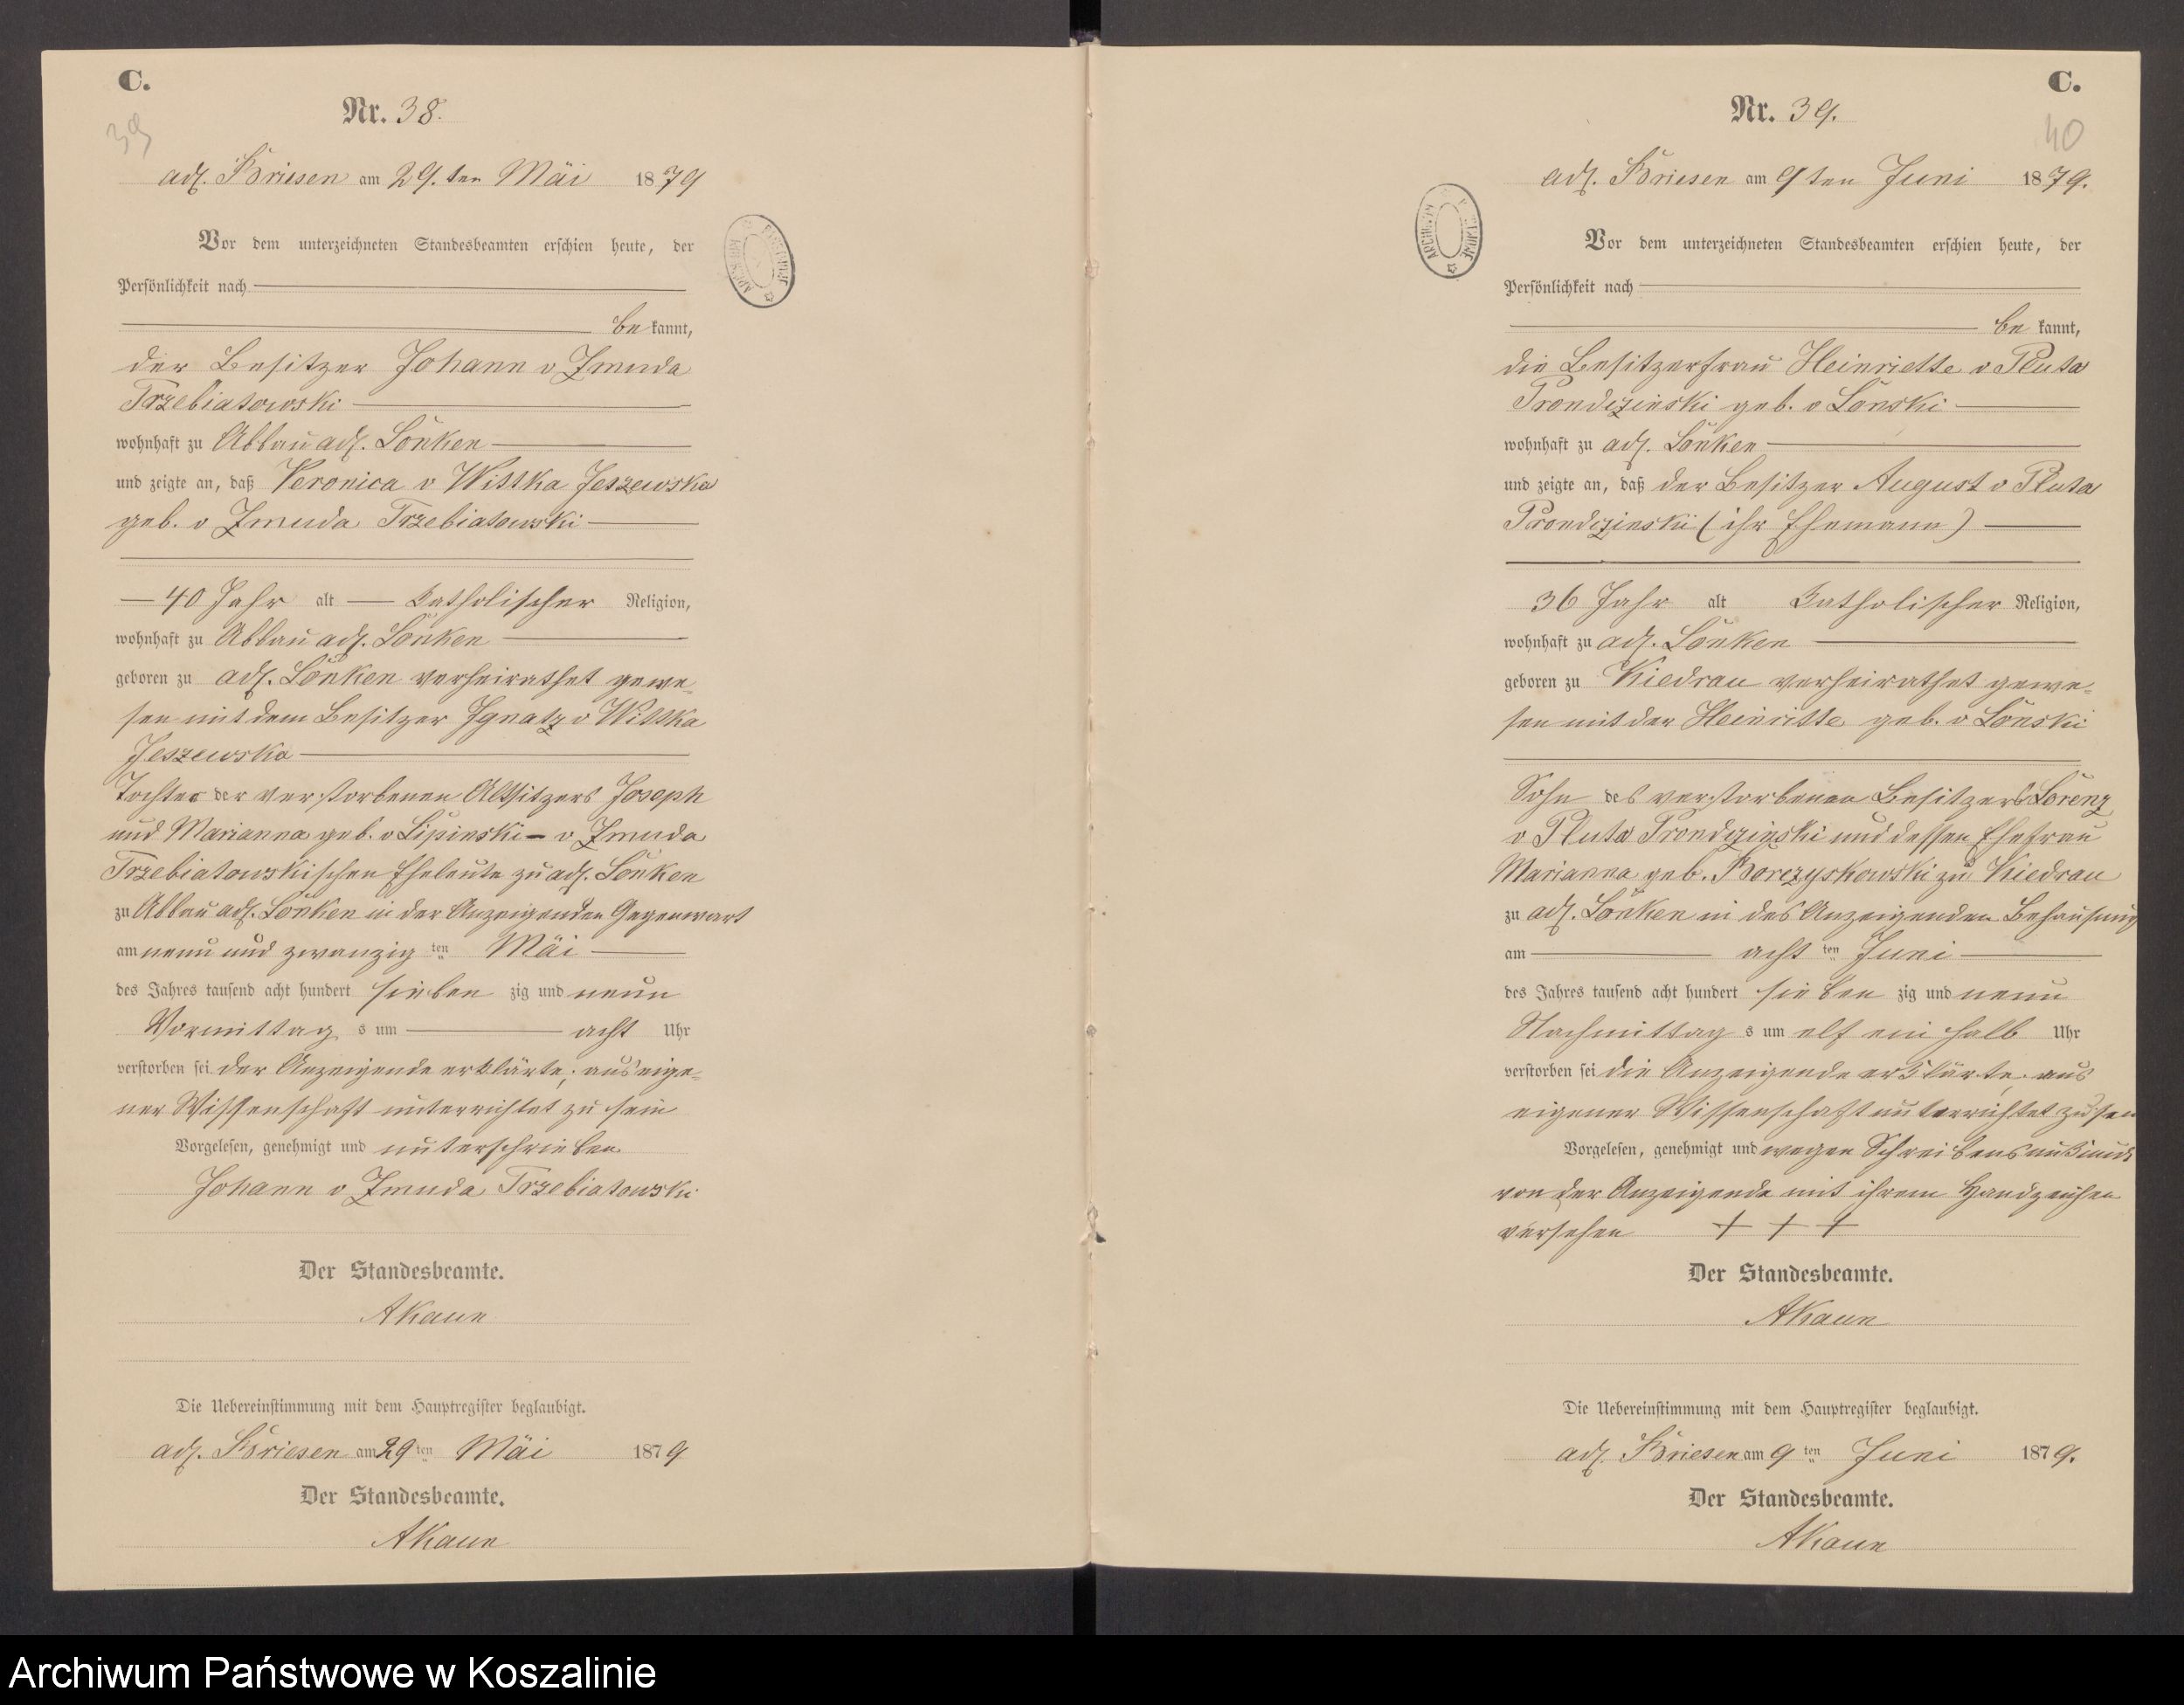 C.
Nr. 38.
39
adl. Briesen am 29.ten Mäi 1879
Vor dem unterzeichneten Standesbeamten erschien heute, der
Persönlichkeit nach
be kannt,
der Besitzer Johann v Zmuda
Trzebiatowski
wohnhaft zu Abbau adl. Lonken
und zeigte an, daß Veronica v Wittka Jeszewska
geb. v Zmuda Trzebiatowski
40 Jahr alt katholischer Religion,
wohnhaft zu Abbau adl. Lonken
geboren zu adl. Lonken verheirathet gewe-
sen mit dem Besitzer Ignatz v Wittka
Jeszewska
Tochter der verstorbenen Altsitzers Joseph
und Marianna geb. v Lipinski - v Zmuda
Trzebiatowskischen Eheleute zu adl. Lonken
zu Abbau adl. Lonken in der Anzeigenden Gegenwart
am neun und zwanzig ten Mäi
des Jahres tausend acht hundert sieben zig und neun
Vormittag s um acht Uhr
verstorben sei der Anzeigende erklärte, aus eige-
ner Wissenschaft unterrichtet zu sein
Vorgelesen, genehmigt und unterschrieben
Johann v Zmuda Trzebiatowski
Der Standesbeamte.
AKaun
Die Uebereinstimmung mit dem Hauptregister beglaubigt.
adl. Briesen am 29 ten Mäi 1879
Der Standesbeamte.
AKaun
C.
Nr. 39.
40
adl. Briesen am 9ten Juni 1879.
Vor dem unterzeichneten Standesbeamten erschien heute, der
Persönlichkeit nach
be kannt,
die Besitzerfrau Heinriette v Pluta
Prondzinski geb. v Lonski
wohnhaft zu adl. Lonken
und zeigte an, daß der Besitzer August v Pluta
Prondzinski (ihr Ehemann)
36 Jahr alt katholischer Religion,
wohnhaft zu adl. Lonken
geboren zu Kiedrau verheirathet gewe-
sen mit der Heinritte geb. v Lonski
Sohn des verstorbenen Besitzers Lorenz
v Pluta Prondzinski und dessen Ehefrau
Marianna geb. Borczyskowski zu Kiedrau
zu adl. Lonken in des Anzeigenden Behausung
am acht ten Juni
des Jahres tausend acht hundert sieben zig und neun
Nachmittag s um elf ein halb Uhr
verstorben sei die Anzeigende erklärte, aus
eigener Wissenschaft unterrichtet zu sein
Vorgelesen, genehmigt und wegen Schreibensunkunde
von der Anzeigende mit ihrem Handzeichen
versehen + + +
Der Standesbeamte.
AKaun
Die Uebereinstimmung mit dem Hauptregister beglaubigt.
adl. Briesen am 9 ten Juni 1879.
Der Standesbeamte.
AKaun
Archiwum Państwowe w Koszalinie